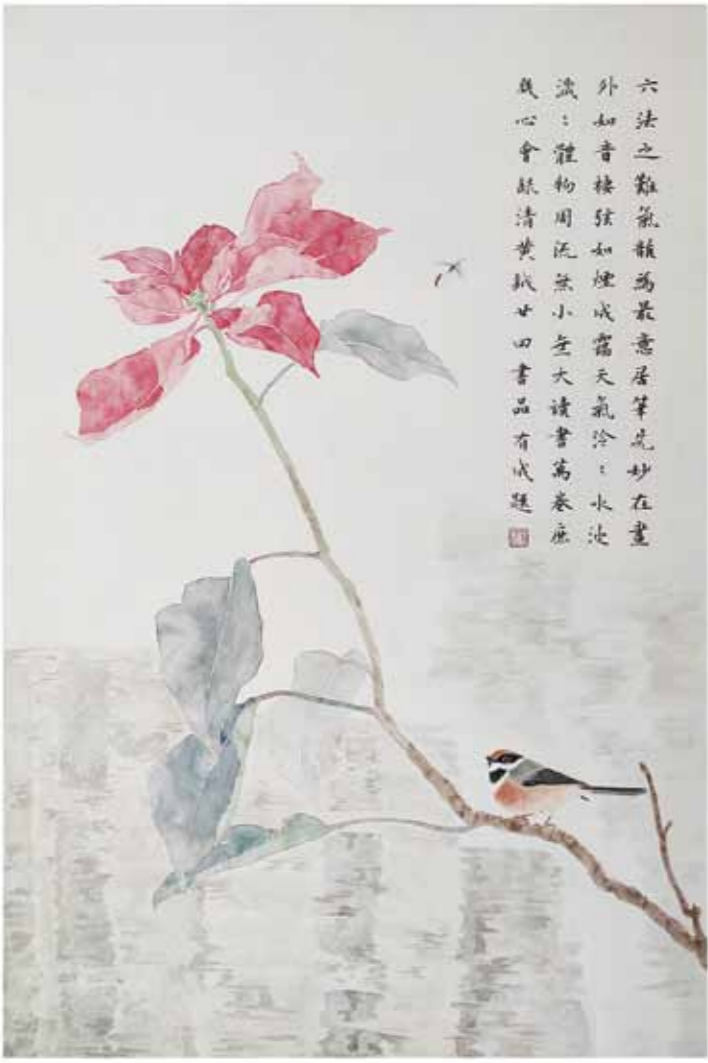 六法之難氣韻為最意居筆先妙在畫
外如音棲弦如煙成靄天氣泠〻水波
瀎〻體物周流無小無大讀書萬卷庶
幾心會錄清黄鉞廿四書品有成題